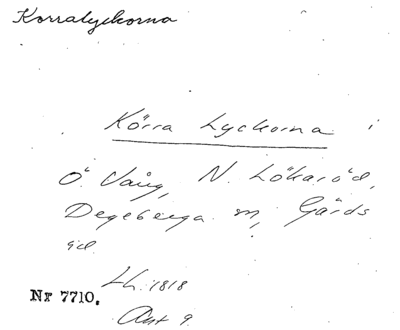 Korralyckorna
Körra Lyckorna i
Ö. Vång, N. Lökaröd,
Degeberga sn, Gärds
äd.
Lh. 1818
Nr 7710.
Akt 9.